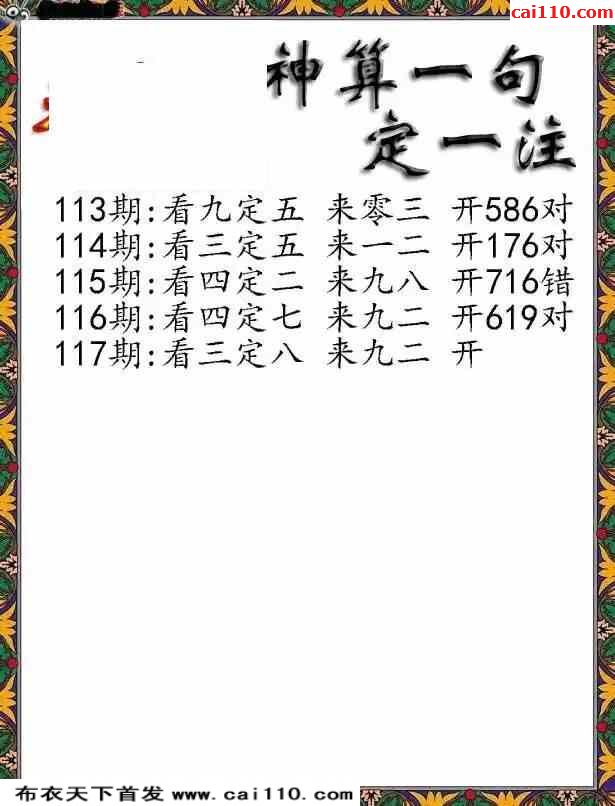 cai110.com
神算一句
定一注
113期:看九定五 来零三 开586对
114期:看三定五 来一二 开176对
115期:看四定二 来九八 开716错
116期:看四定七 来九二 开619对
117期:看三定八 来九二 开
布衣天下首发 www.cai110.com